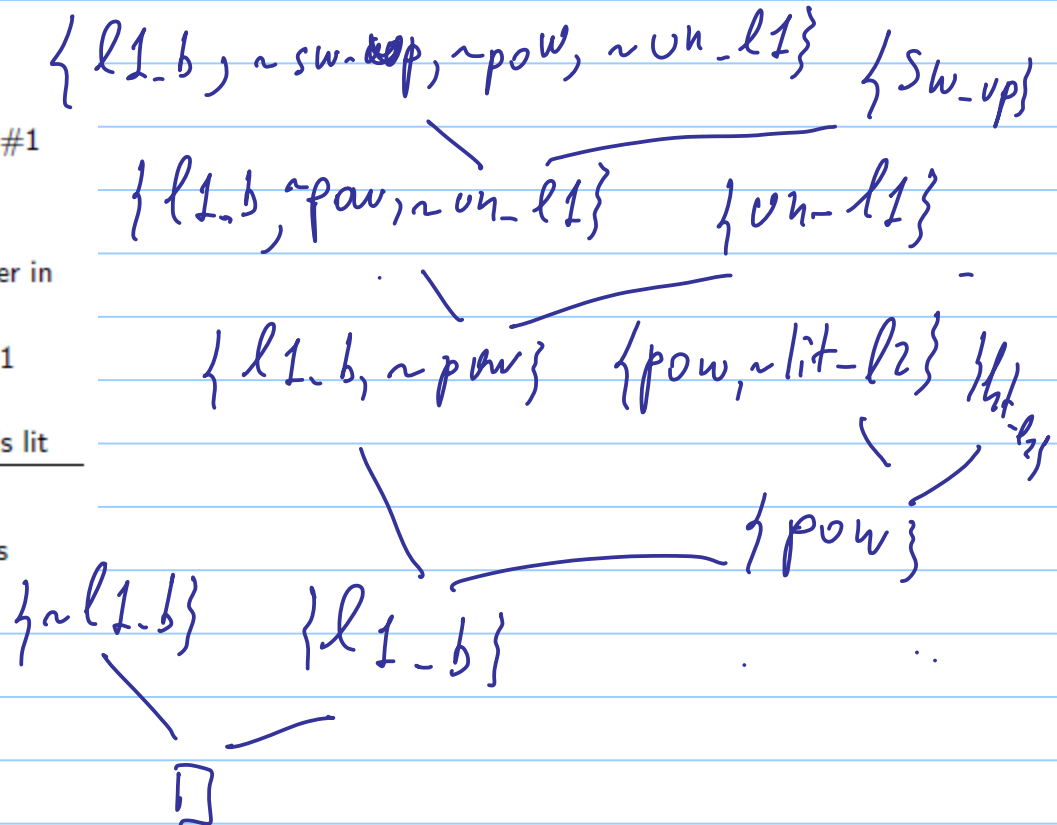 {l1_b, ~sw_up, ~pow, ~un_l1} {sw_up}
#1
{l1_b, ~pow, ~un_l1} {un_l1}
er in
{l1_b, ~pow} {pow, ~lit_l2} {lit_l2}
1
s lit
{pow}
s
{~l1_b} {l1_b}